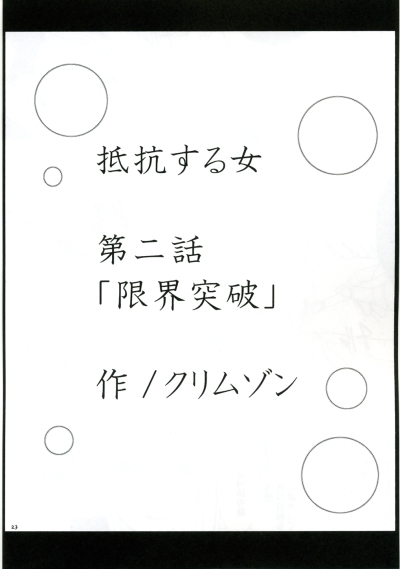 抵抗する女
第二話
「限界突破」
作 / クリムゾン
23